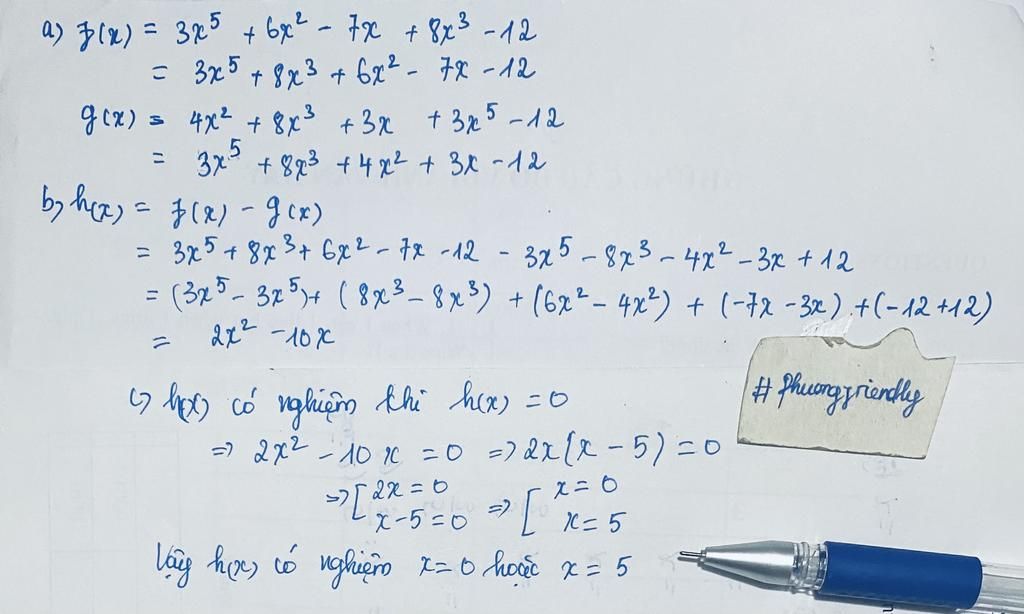 a) f(x) = 3x⁵ + 6x² - 7x + 8x³ - 12
= 3x⁵ + 8x³ + 6x² - 7x - 12
g(x) = 4x² + 8x³ + 3x + 3x⁵ - 12
= 3x⁵ + 8x³ + 4x² + 3x - 12
b) h(x) = f(x) - g(x)
= 3x⁵ + 8x³ + 6x² - 7x - 12 - 3x⁵ - 8x³ - 4x² - 3x + 12
= (3x⁵ - 3x⁵) + (8x³ - 8x³) + (6x² - 4x²) + (-7x - 3x) + (-12 + 12)
= 2x² - 10x
c) h(x) có nghiệm khi h(x) = 0
=> 2x² - 10x = 0 => 2x(x - 5) = 0
=> [ 2x = 0 => [ x = 0
x - 5 = 0 x = 5
Vậy h(x) có nghiệm x = 0 hoặc x = 5
# phuongfriendly